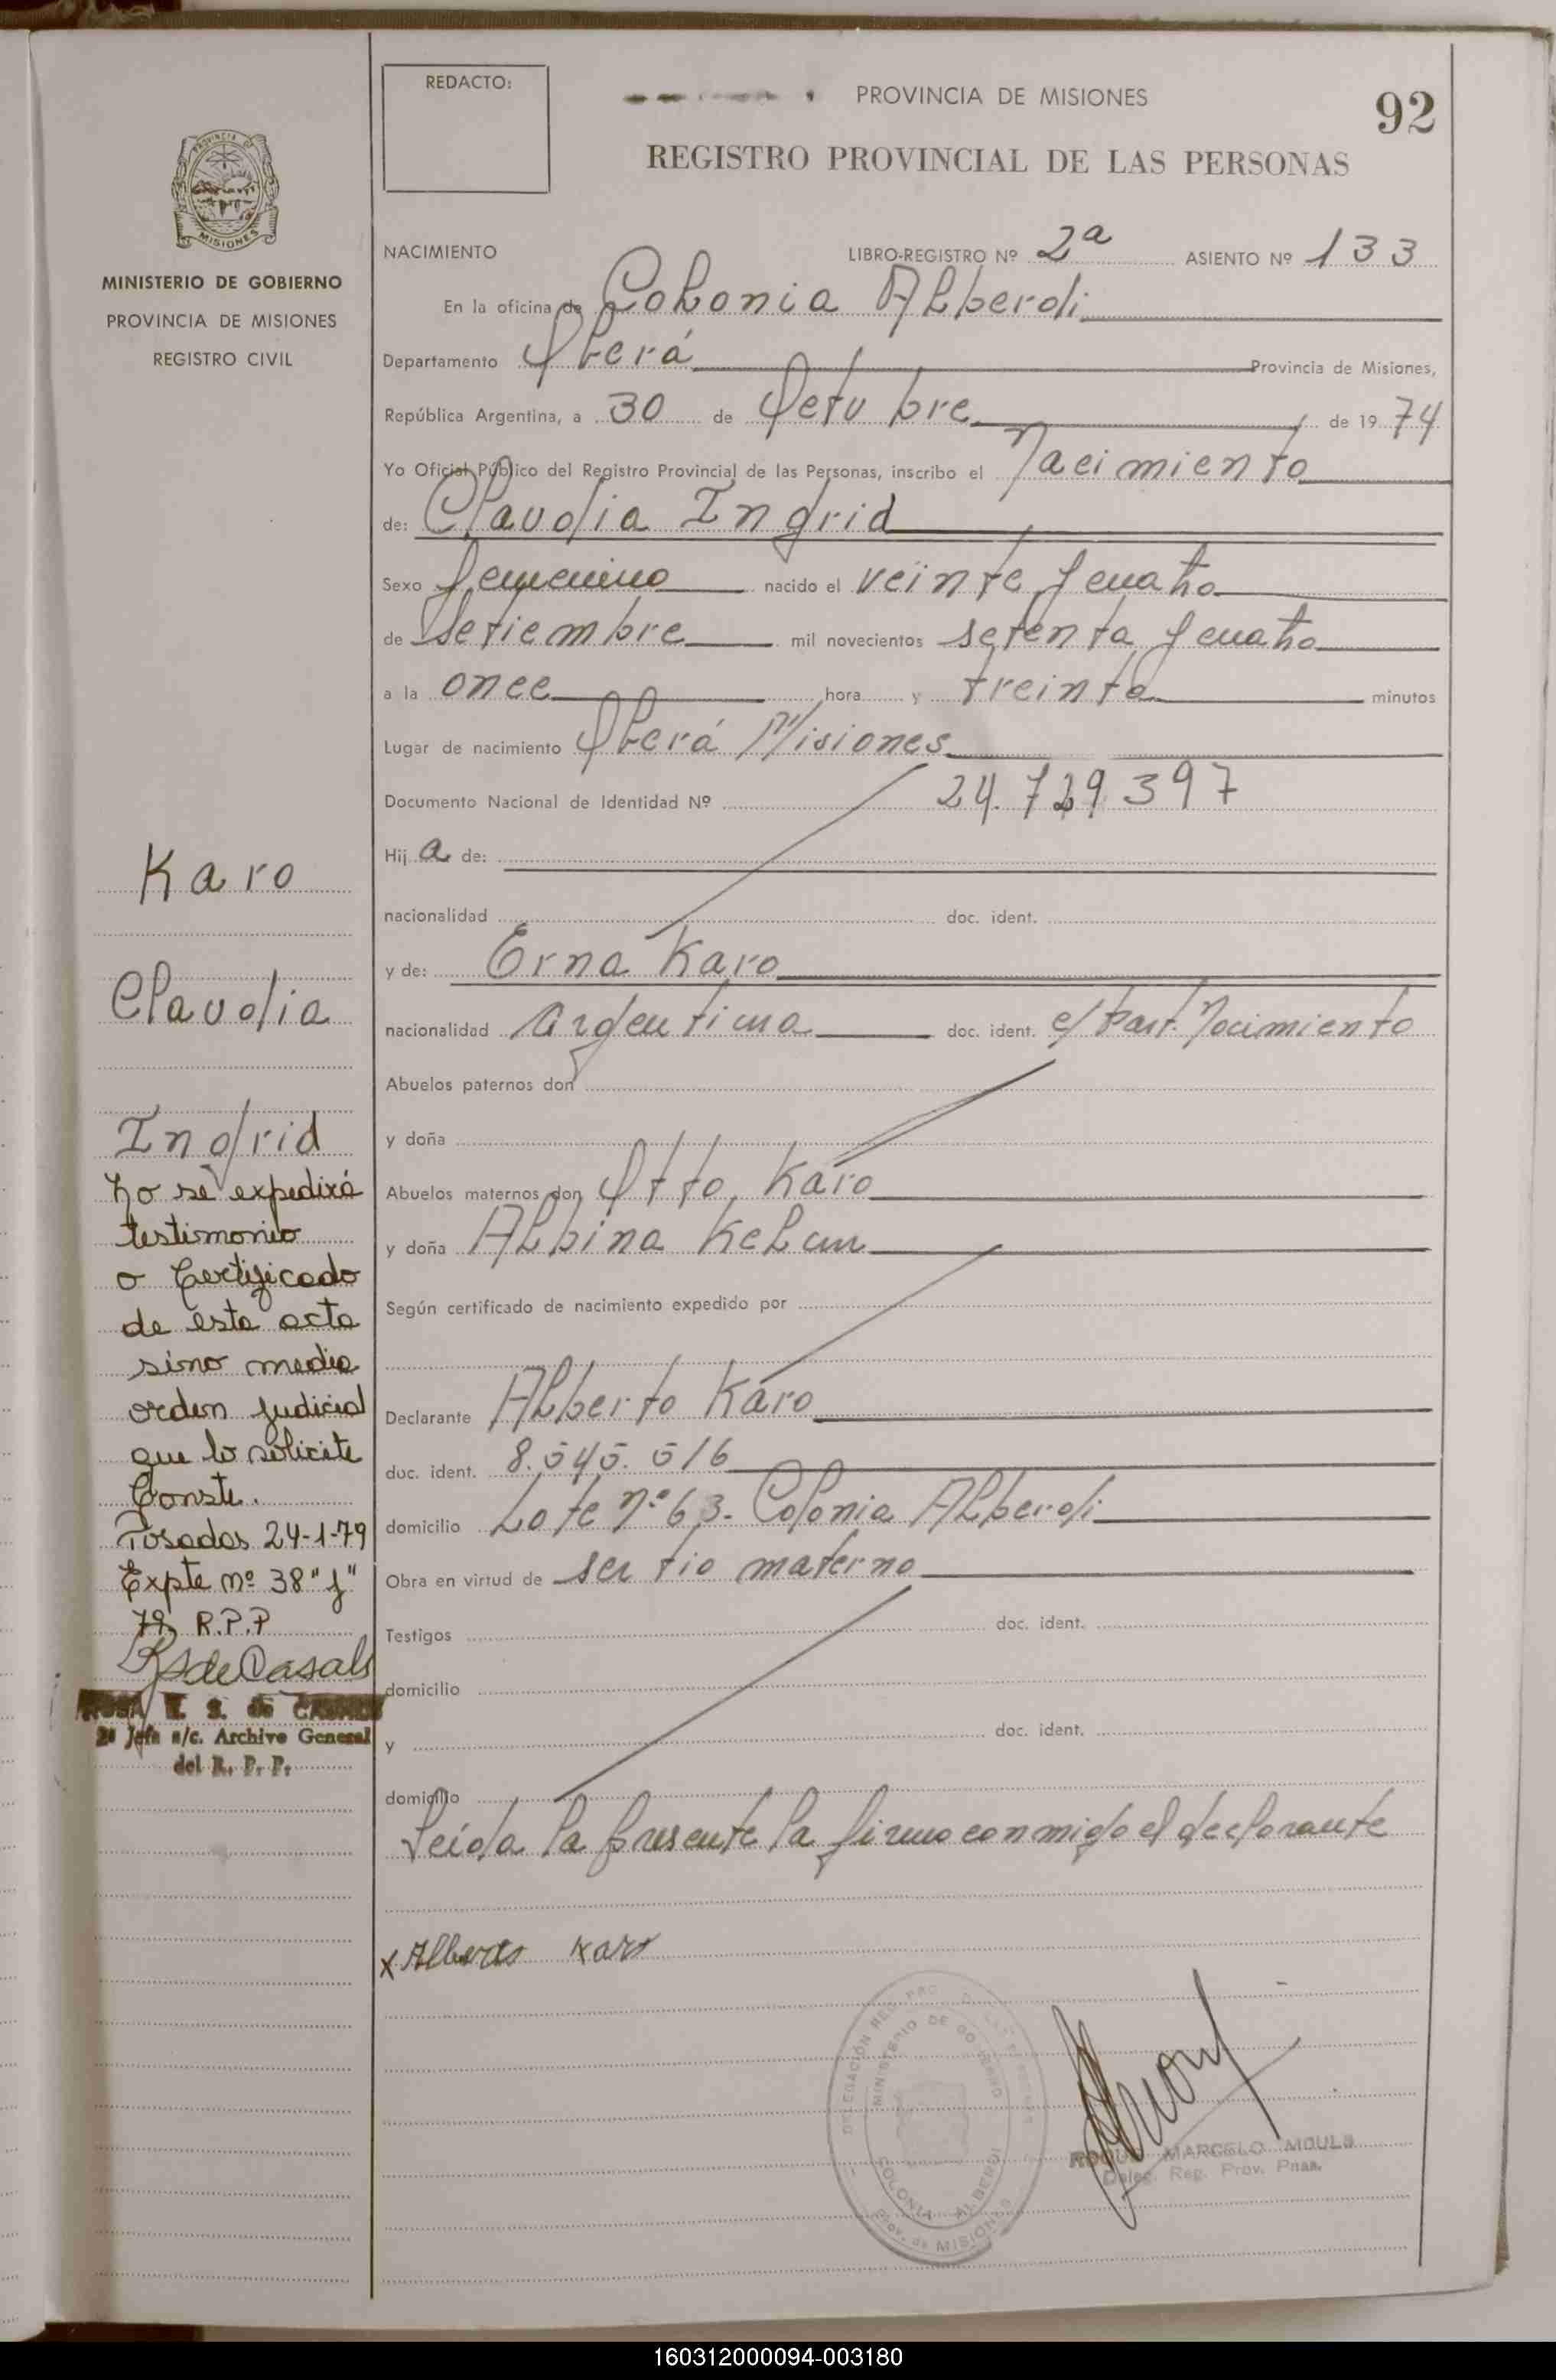 REDACTO:
PROVINCIA DE MISIONES
92
REGISTRO PROVINCIAL DE LAS PERSONAS
PROVINCIA DE
MISIONES
MINISTERIO DE GOBIERNO
PROVINCIA DE MISIONES
REGISTRO CIVIL
NACIMIENTO LIBRO-REGISTRO Nº 2ª ASIENTO Nº 133
En la oficina de Colonia Alberdi
Departamento Oberá Provincia de Misiones,
República Argentina, a 30 de Octubre de 19 74
Yo Oficial Público del Registro Provincial de las Personas, inscribo el Nacimiento
de: Claudia Ingrid
Sexo femenino nacido el veinte y cuatro
de Setiembre mil novecientos setenta y cuatro
a la once hora y treinta minutos
Lugar de nacimiento Oberá Misiones
Documento Nacional de Identidad Nº 24.729.397
Hij a de:
nacionalidad doc. ident.
y de: Erna Karo
nacionalidad argentina doc. ident. c/ Part. Nacimiento
Abuelos paternos don
y doña
Abuelos maternos don Otto Karo
y doña Albina
Según certificado de nacimiento expedido por
Declarante Alberto Karo
doc. ident. 8.545.516
domicilio Lote nº 63- Colonia Alberdi
Obra en virtud de ser tio materno
Testigos doc. ident.
domicilio
y doc. ident.
domicilio
Leída la presente la firma conmigo el declarante
x Alberto Karo
Karo
Claudia
Ingrid
No se expedirá
testimonio
o Certificado
de esta acta
sino media
orden judicial
que lo solicite
Conste.
Posadas 24-1-79
Expte nº 38 "J"
79 R.P.P
RS de Casals
ROSA E. S. de CASALS
2ª Jefa a/c. Archivo General
del R. P. P.
MINISTERIO DE GOBIERNO
COLONIA ALBERDI
Prov. de MISIONES
ROQUE MARCELO MOULS
Deleg. Reg. Prov. Pnas.
160312000094-003180